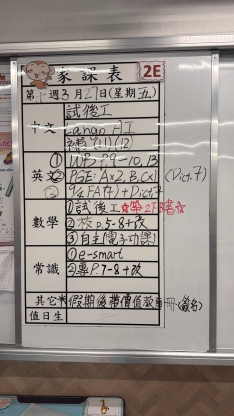 家課表 2E
第十週3月27日(星期五)
試後工
中文
補(11),(12)
① WB P.9-10,13
英文② PGE: Ax2, B, Cx1 (Dict.7)
③ 9/4 FA(7)+Dict.7
①試後工☆帶2下書☆
數學 ②校p.5-8+改
③自主(電子功課)
①e-smart
常識
②專P.7-8+改
其它 假期後帶價值教育冊(簽名)
值日生